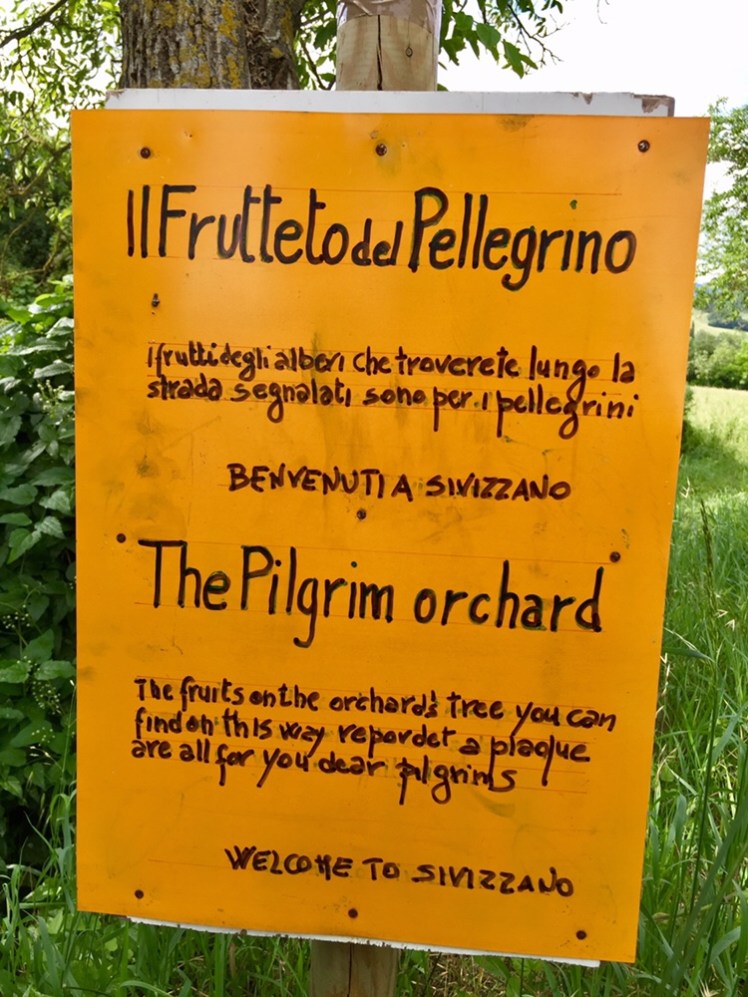 Il Frutteto del Pellegrino
I frutti degli alberi che troverete lungo la
strada segnalati sono per i pellegrini
BENVENUTI A SIVIZZANO
The Pilgrim orchard
The fruits on the orchard's tree you can
find on this way repordet a plaque
are all for you dear pilgrims
WELCOME TO SIVIZZANO